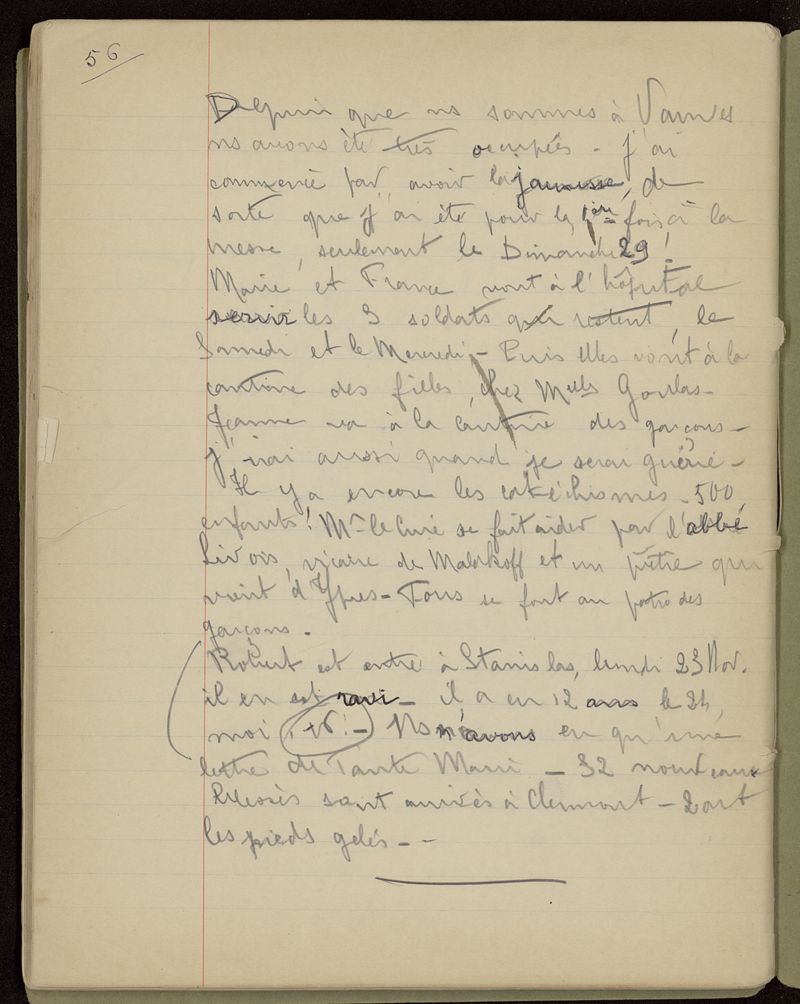 56
Depuis que ns sommes à Vanves
ns avons été très occupés - j'ai
commencé par avoir la jaunisse, de
sorte que j'ai été pour la 1ère fois à la
messe, seulement le Dimanche 29!
Marie et France vont à l'hôpital
servir les 3 soldats qui restent, le
Samedi et le Mercredi - Puis elles vont à la
cantine des filles, chez Melles
Jeanne va à la cantine des garçons -
j'irai aussi quand je serai guérie -
Il y a encore les catéchismes - 500
enfants! Mr le Curé se fait aider par l'abbé
Livois, vicaire de Malakoff et un prêtre qui
vient d'Ypres - Tous se font au patro des
garçons.
Robert est entré à Stanislas, lundi 23 Nov.
il en est ravi - il a eu 12 ans le 24,
moi, 16! - Ns n'avons eu qu'une
lettre de Tante Marie - 32 nouveaux
blessés sont arrivés à Clermont - 2 ont
les pieds gelés - -